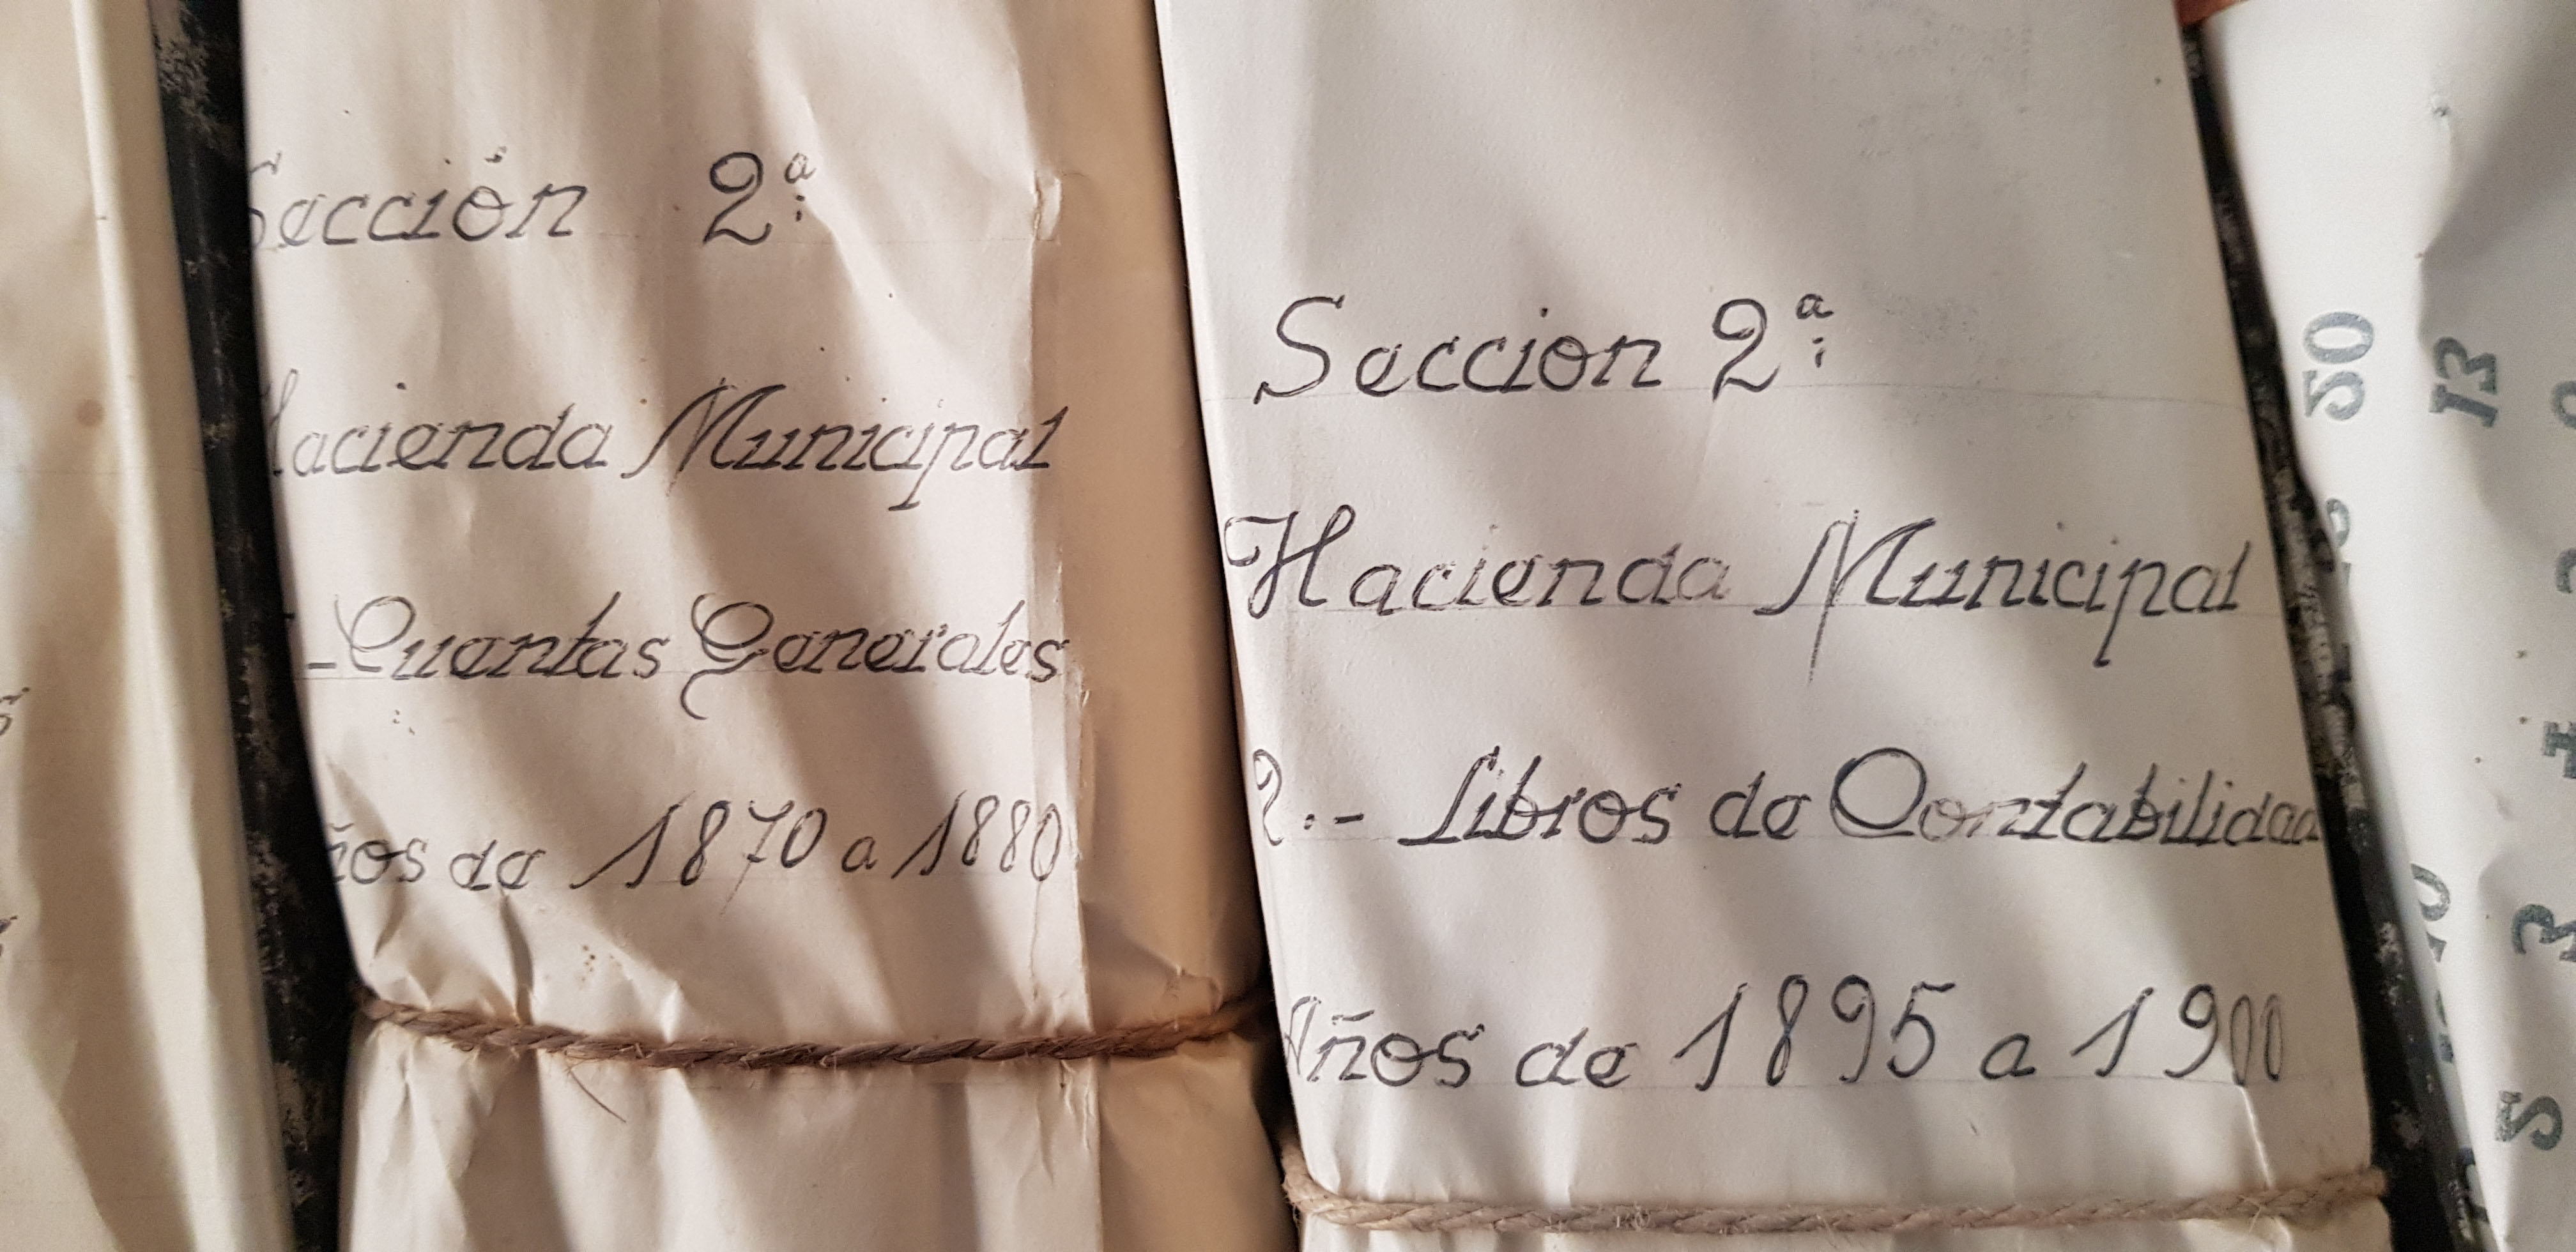 Sección 2ª
Hacienda Municipal
- Cuentas Generales
ños de 1870 a 1880
Seccion 2ª
Hacienda Municipal
2.- Libros de Contabilidad
Años de 1895 a 1900
50
13